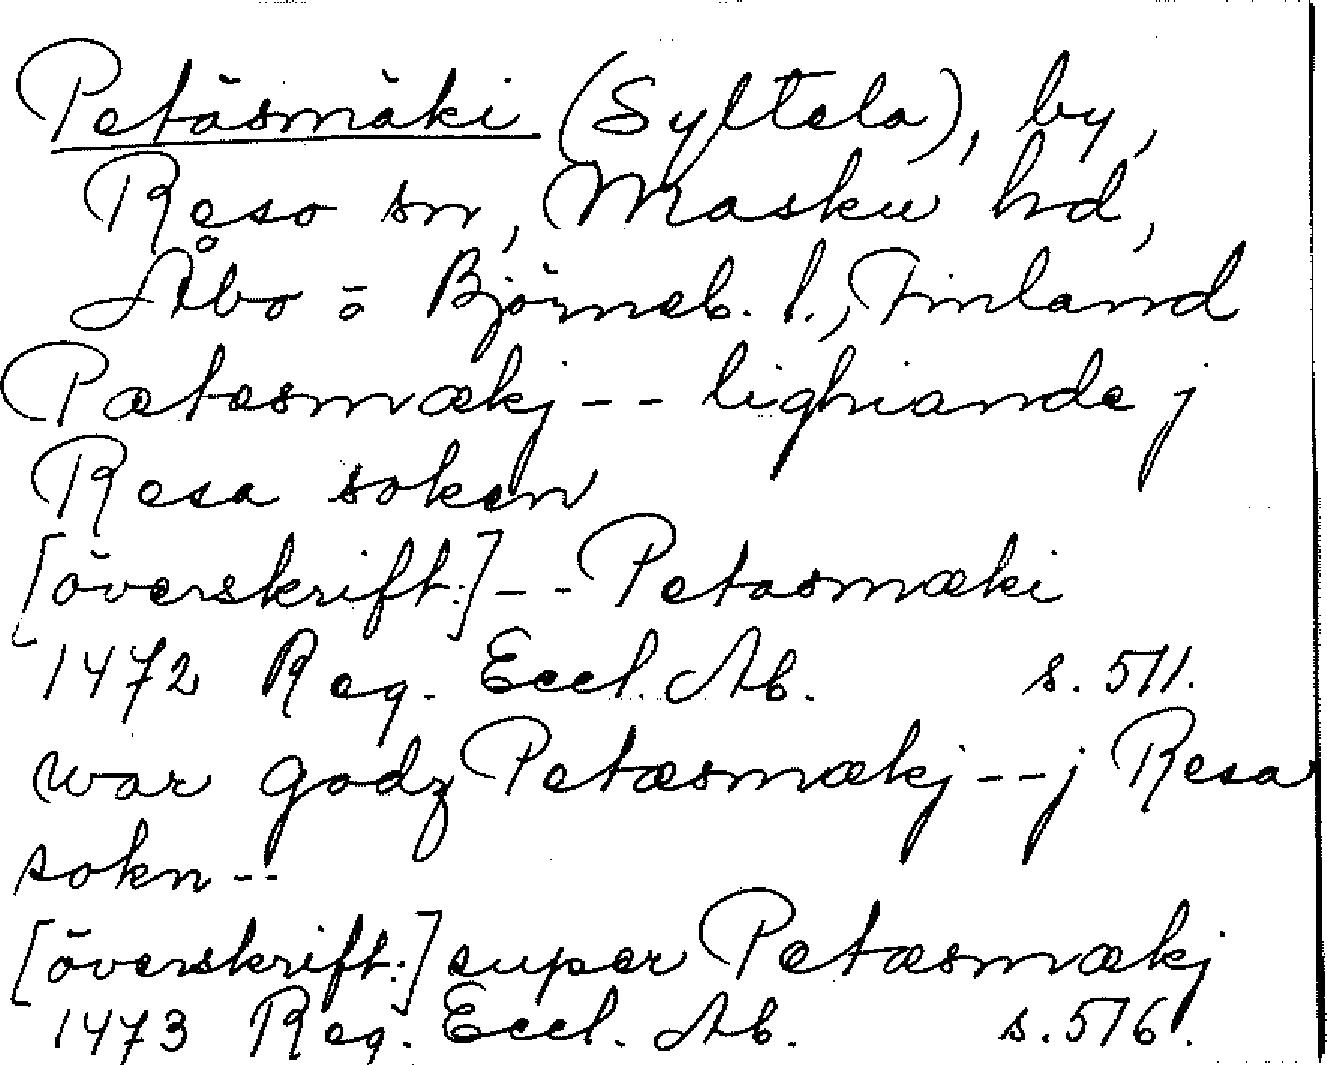 Petäsmäki (Syltela), by,
Reso sn, Masku hd,
Åbo o Björneb. l., Finland
Pætæsmækj -- lighiande j
Resa soken
[överskrift:] -- Petasmæki
1472 Reg. Eccl. Ab. s. 511.
war godz Petæsmækj -- j Resa
sokn --
[överskrift:] super Petæsmækj
1473 Reg. Eccl. Ab. s. 516.